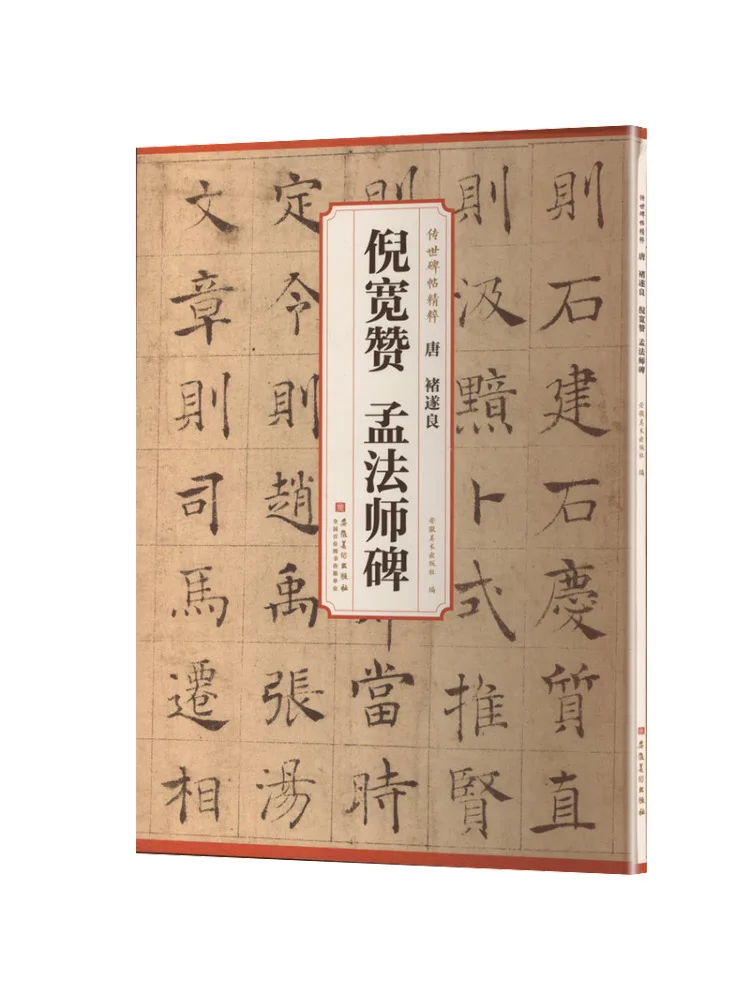 传世碑帖精粹 唐 褚遂良 倪宽赞 孟法师碑 安徽美术出版社 编 安徽美术出版社
則石建石慶質直
則汲黯卜式推賢
則當時
定令則趙禹張湯
文章則司馬遷相
传世碑帖精粹 唐 褚遂良 安徽美术出版社 编
倪宽赞 孟法师碑
安徽美术出版社
全国百佳图书出版单位